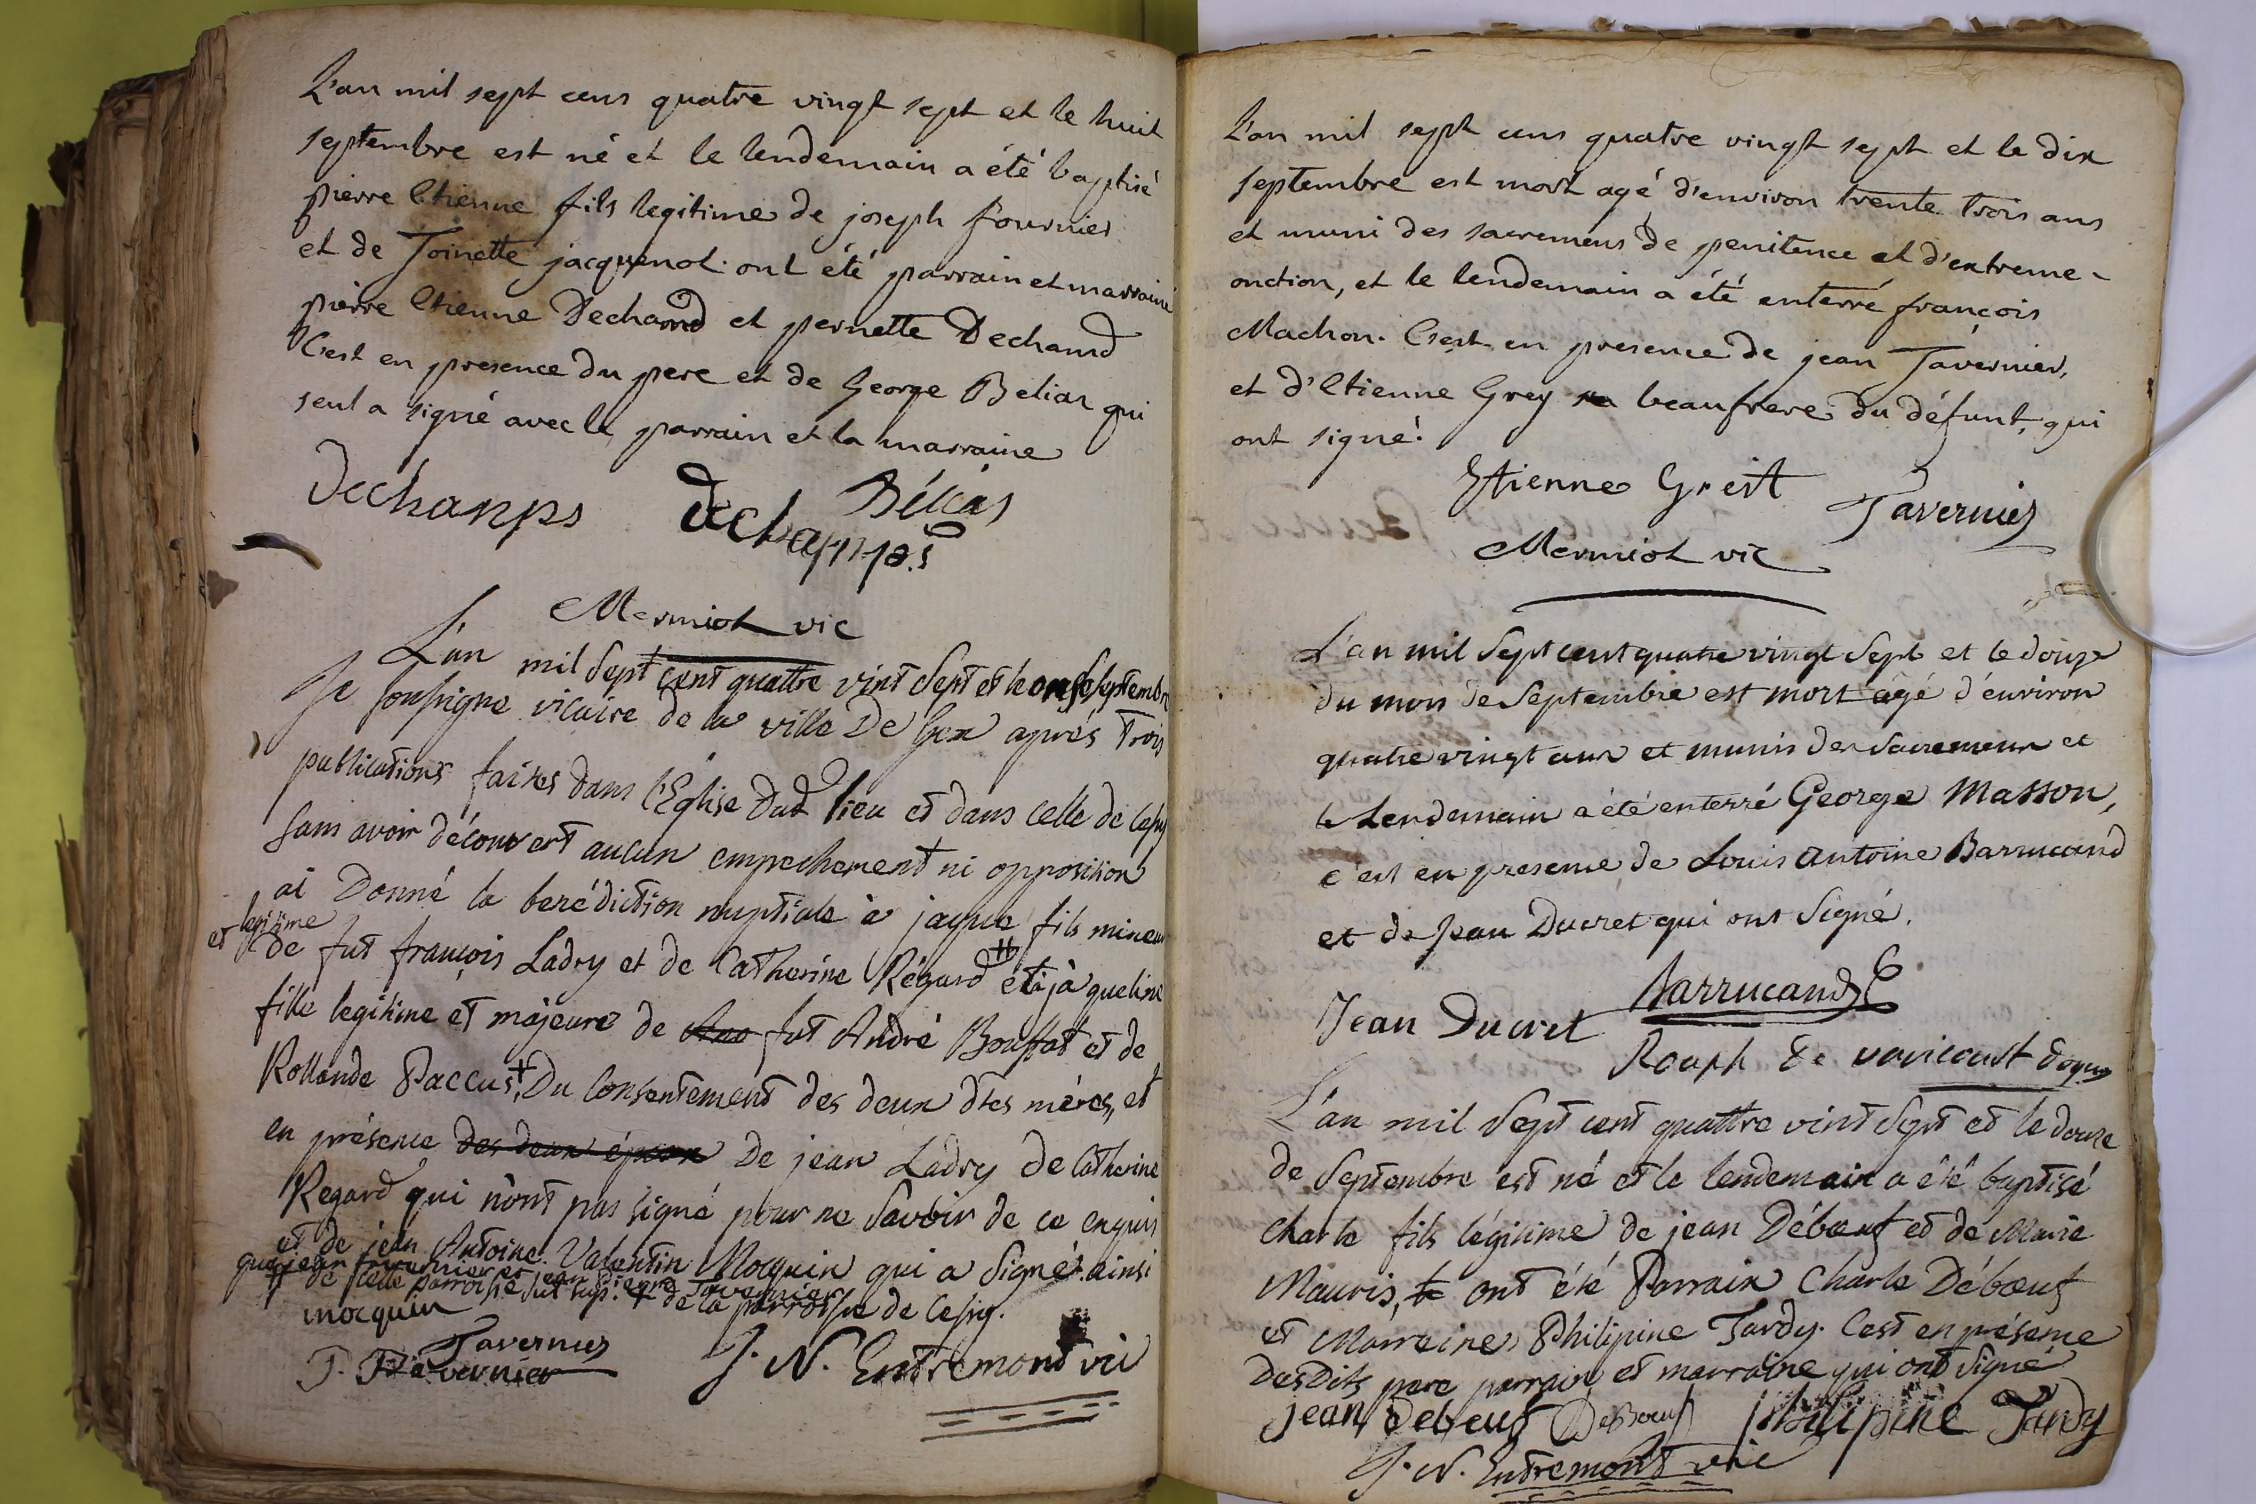 L'an mil sept cens quatre vingt sept et le huit
septembre est né et le lendemain a été baptisé
pierre Etienne fils legitime de joseph fournier
et de Toinette jacquenot. ont été parrain et marraine
pierre Etienne Dechamd et pernette Dechamd
C'est en presence du pere et de George Belias qui
seul a signé avec le parrain et la marraine
Dechamps dechamps Bélias
Mermiot vic
L'an mil Sept cent quattre vint Sept et le onse Septembre
Je soussigne vicaire de la ville De Gex aprés Trois
publications faites dans l'Eglise Dud lieu et dans celle de Cessy
sans avoir découvert aucun empechement ni opposition
ai Donné la benédiction nuptiale à jaque fils mineur
et legitime
de fut françois Ladry et de Catherine Régard et à jaqueline
fille legitime et majeure de fut André Bouffat et de
Rollande Paccus, Du Consentement des deux dtes méres, et
en présence des deux époux De jean Ladry de Catherine
Regard qui n'ont pas signé pour ne Savoir de ce enquis
et de jean Antoine Valentin Mocquin qui a Signé ainsi
que jean tavernier et jean Pierre Tavernier
de cette parroisse fut sup. de la parroisse de Cessy.
mocquin
Tavernier
P. Tavernier J. N. Entremont vic
L'an mil sept cens quatre vingt sept et le dix
septembre est mort agé d'environ trente trois ans
et muni des sacremens de penitence et d'extreme-
onction, et le lendemain a été enterré françois
Machon. C'est en presence de jean Tavernier,
et d'Etienne Grey beaufrere du défunt, qui
ont signé.
Etienne Greit Tavernier
Mermiot vic
L'an mil Sept cent quatre vingt Sept et le douze
du mois de Septembre est mort âgé d'environ
quatre vingt ans et munis des Sacremens et
le Lendemain a été enterré George Masson,
c'est en presence de Louis Antoine Barrucand
et de Jean Ducret qui ont Signé.
Jean Ducret Barrucand
Rouph de varicourt doyen
L'an mil Sept cent quattre vint Sept et le douze
de Septembre est né et le lendemain a été baptisé
Charle fils légitime de jean Débœuf et de Marie
Mauris, ont été Parrain Charle Débœuf
et Marreine Philipine Tardy. C'est en présence
Des Dits pere parrain et marraine qui ont Signé
jean debeuf DeBoeuf philipine Tardy
J. N. Entremont vic